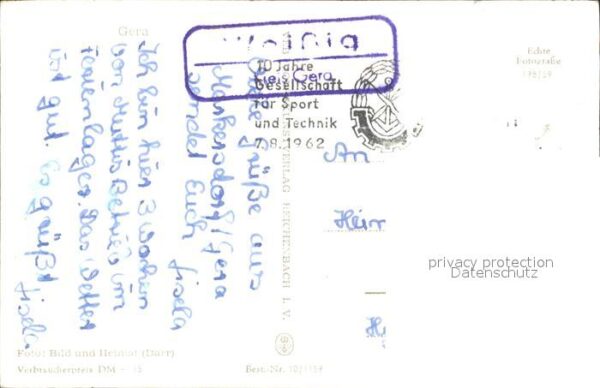 Gera
Weißig
Kreis Gera
10 Jahre
Gesellschaft
für Sport
und Technik
7.8.1962
Echte
Fotografie
Viele Grüße aus
Markersdorf/Gera
sendet Euch Gisela
Ich bin hier 3 Wochen
von Muttis Betrieb im
Ferienlager. Das Wetter
ist gut. Es grüßt Gisela
VERLAG REICHENBACH I. V.
An
Herrn
privacy protection
Datenschutz
Foto: Bild und Heimat (Darr)
Verbraucherpreis DM -.15
Best.-Nr.